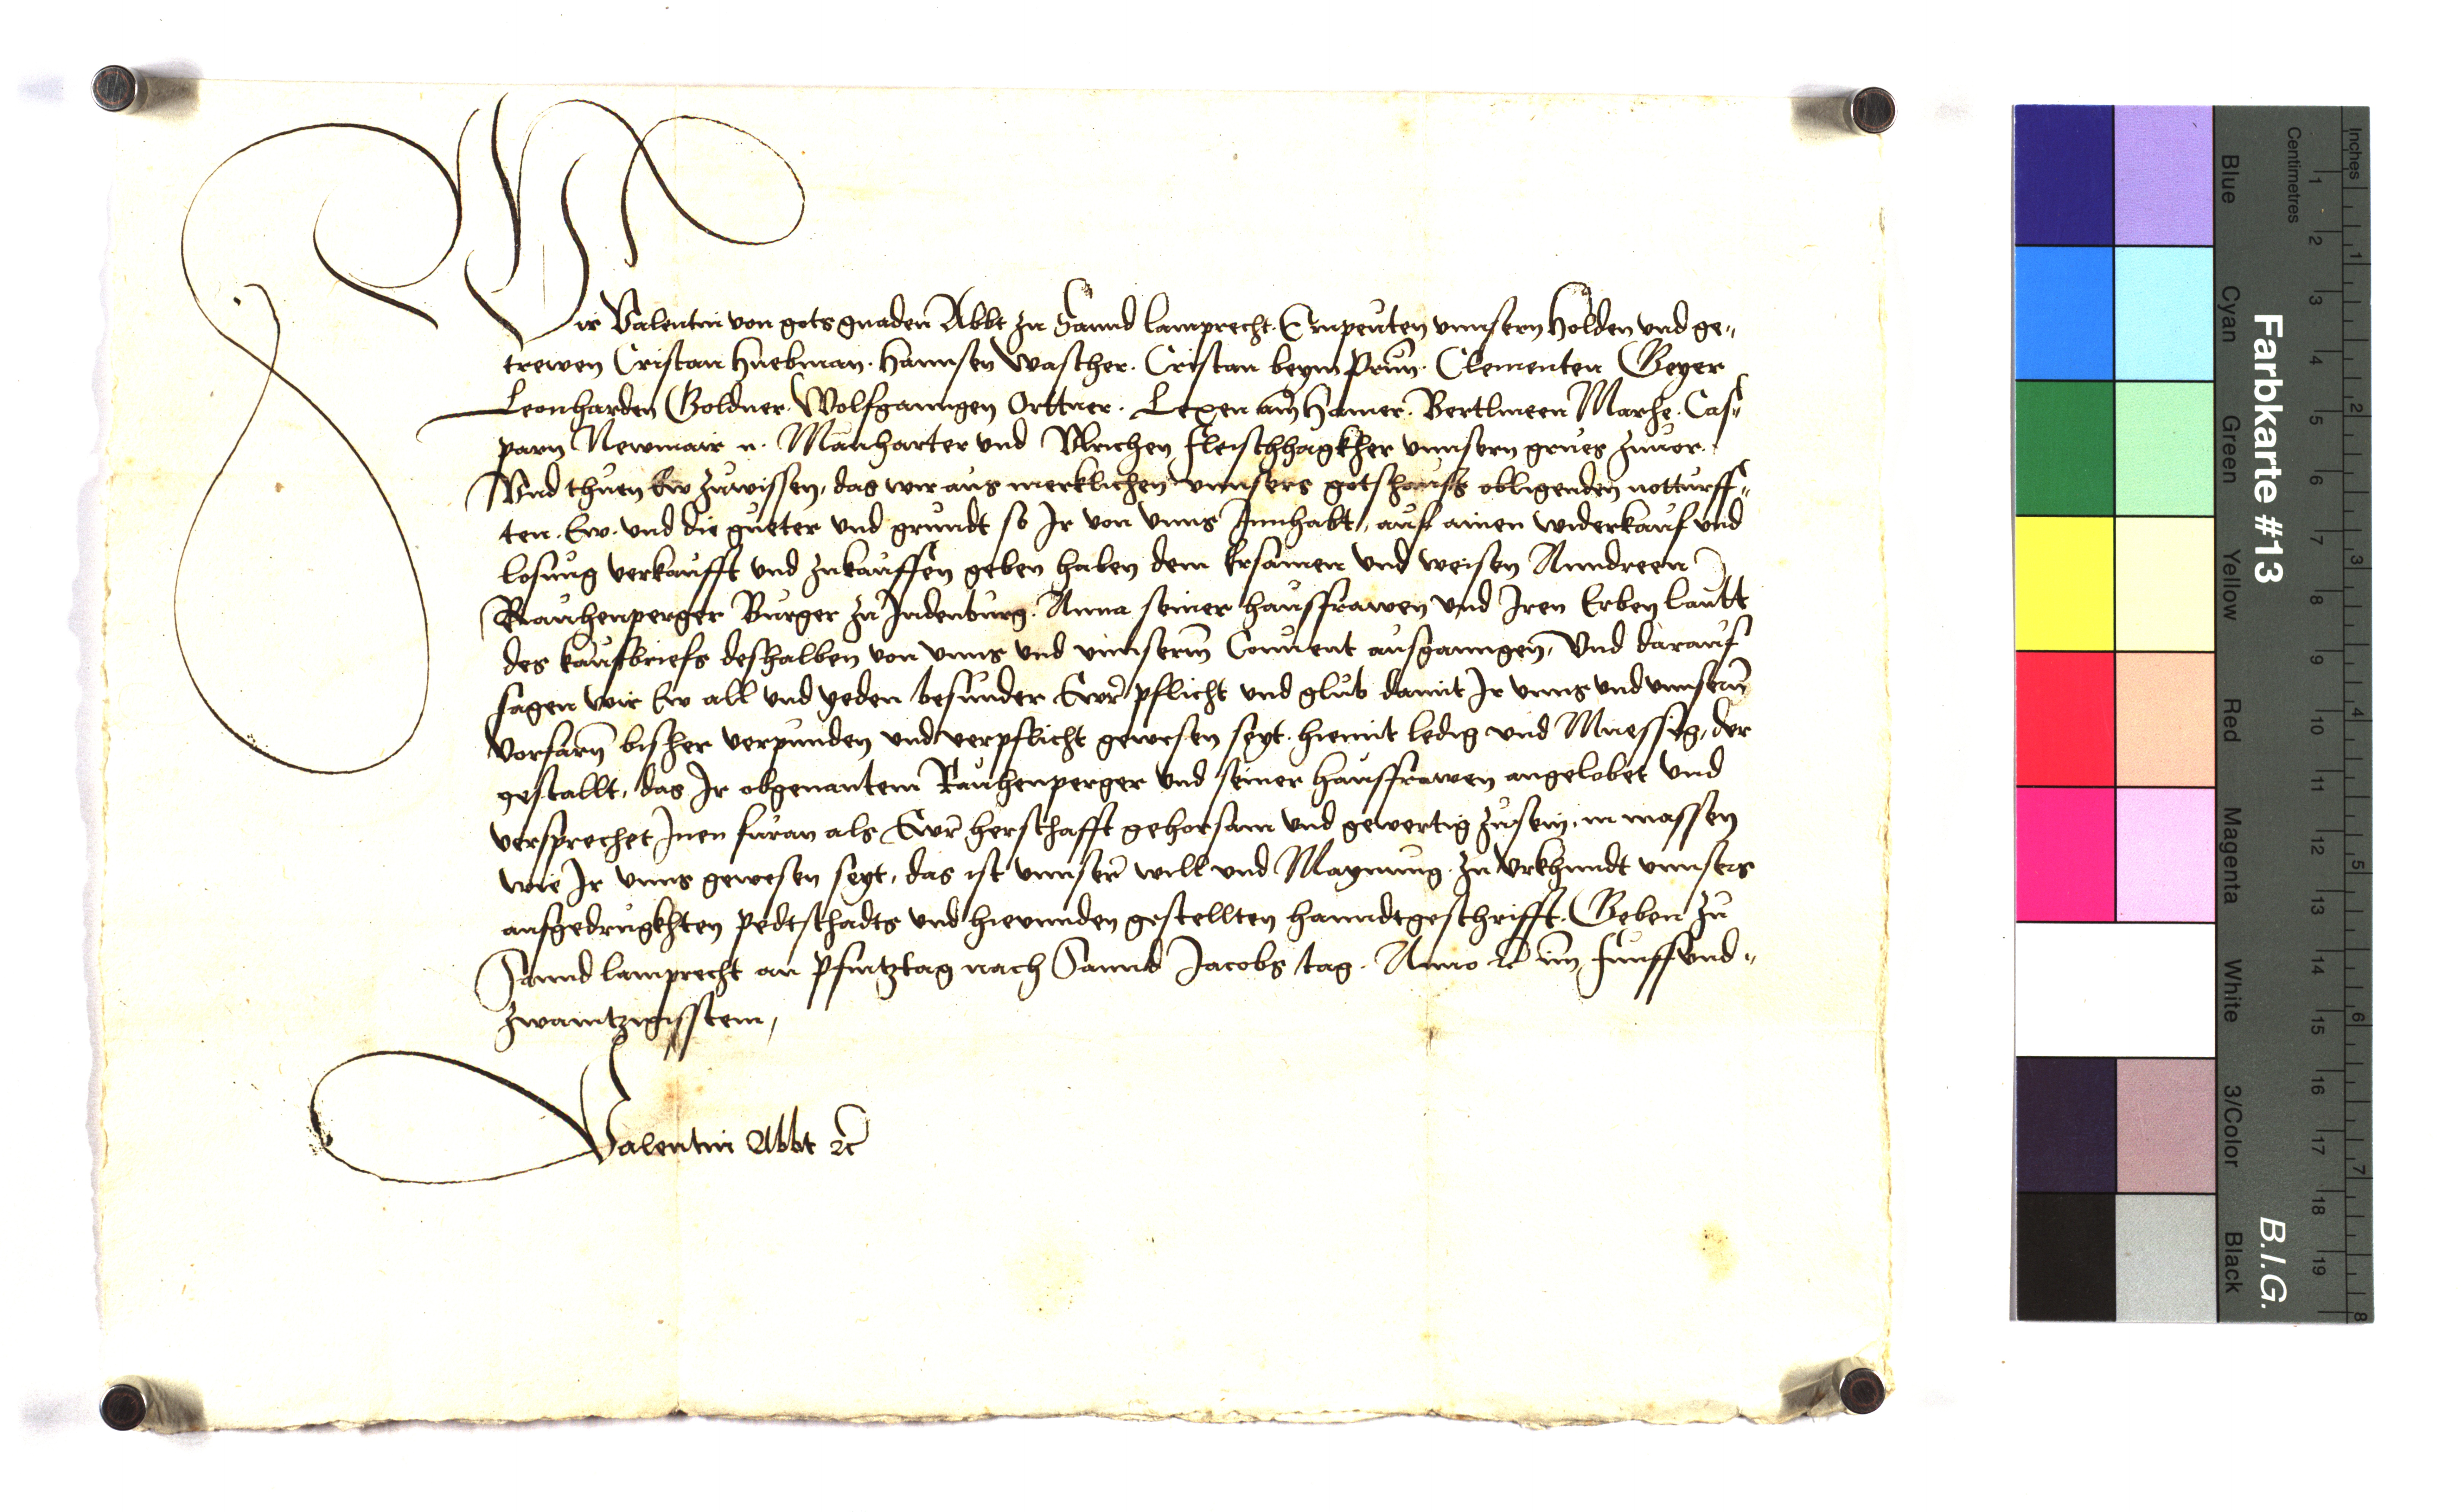 Wir Valentin von gots gnaden Abbt zu Sannd lamprecht. Enpeuten unnsern Holden und ge„
trewen Cristan Huebman. Hannsen Wascher. Cristan beym Prun. Clementen Geyer
Leonharden Goldner. Wolfganngen Orttner. Lexen am Hamer. Bertlmeen Marhe. Cas„
parn Newmair n. Manharter und Ulrichen fleischhagkher unnsern grues zuuor.
Und thuen Ew zuwissen, das wir aus merklichen unnsers gotshauss obligenden notturff„
ten. Ew. und die gueter und grundt so Ir von unns Innhabt, auf ainen widerkauf und
losung verkaufft und zukauffen geben haben dem Ersamen und weisen Anndreen
Rauchenperger Burger zu Judenburg. Anna seiner hausfrawen und Iren Erben lautt
des kaufbriefs deshalben von unns und unnserm Conuent ausganngen, Und darauf
sagen wir Ew all und yeden besunder Ewr pflicht und glub damit Ir unns und unnsern
Vorfarn bisher verpunden und verpflicht gewesen seyt. hiemit ledig und Muessig, der
gestallt, das Ir obgenantem Rauhenperger und seiner hausfrawen angelobet und
versprechet Inen furan als Ewr herschafft gehorsam und gewertig zusein, in massen
wie Ir unns gewesen seyt, das ist unnser will und Maynung. Zu Urkhundt unnsers
aufgedrugkhten pedtschadts und hieunnden gestellten hanndtgeschrifft. Geben zu
Sannd lamprecht an Pfintztag nach Sannd Jacobs tag. Anno ec im funffund„
zwaintzigisstem,
Valentin Abbt ec
Farbkarte #13
B.I.G.
Inches
Centimetres
1 2 3 4 5 6 7 8
1 2 3 4 5 6 7 8 9 10 11 12 13 14 15 16 17 18 19
Blue
Cyan
Green
Yellow
Red
Magenta
White
3/Color
Black